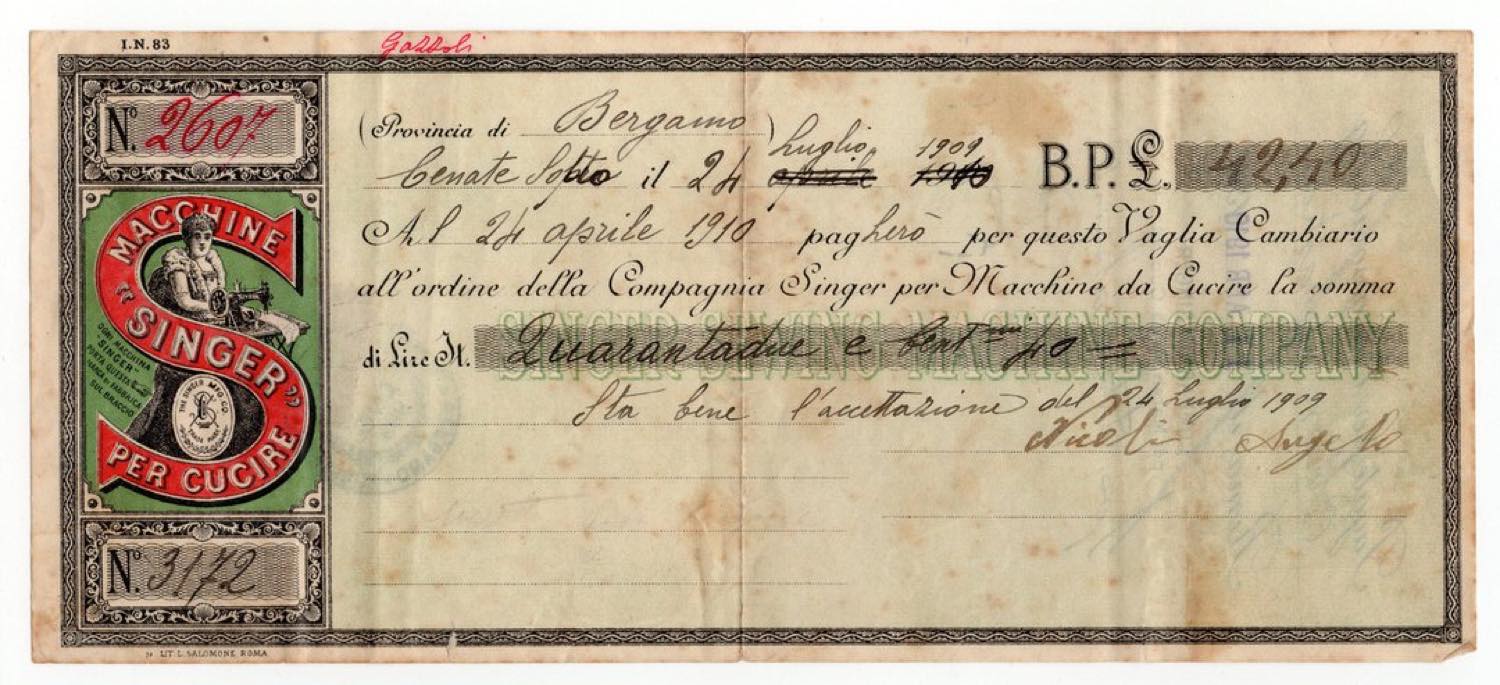 I.N. 83
Gazzoli
N.º 2607
(Provincia di Bergamo)
Luglio 1909
Cenate Sotto il 24 aprile 1910 B.P.£. 42,40
Al 24 aprile 1910 pagherò per questo Vaglia Cambiario
all'ordine della Compagnia Singer per Macchine da Cucire la somma
SINGER SEWING MACHINE COMPANY
di Lire It. Quarantadue e Cent.mi 40 =
Sta bene l'accettazione del 24 Luglio 1909
Nicoli Angelo
MACCHINE
"SINGER"
PER CUCIRE
OGNI MACCHINA
"SINGER"
PORTA QUESTA
MARCA DI FABBRICA
SUL BRACCIO
THE SINGER MFG. CO.
TRADE MARK
N.º 3172
LIT. L. SALOMONE ROMA